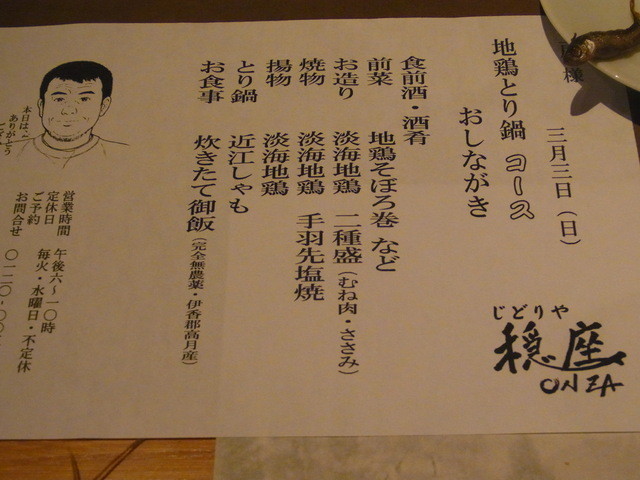 様
三月三日（日）
地鶏とり鍋 コース
おしながき
じどりや
穏座
ONZA
食前酒・酒肴
前菜 地鶏そぼろ巻 など
お造り 淡海地鶏 二種盛（むね肉・ささみ）
焼物 淡海地鶏 手羽先塩焼
揚物 淡海地鶏
とり鍋 近江しゃも
お食事 炊きたて御飯（完全無農薬・伊香郡高月産）
本日は、
ありがとう
営業時間 午後六～一〇時
定休日 毎火・水曜日・不定休
ご予約
お問合せ 〇一二〇-〇